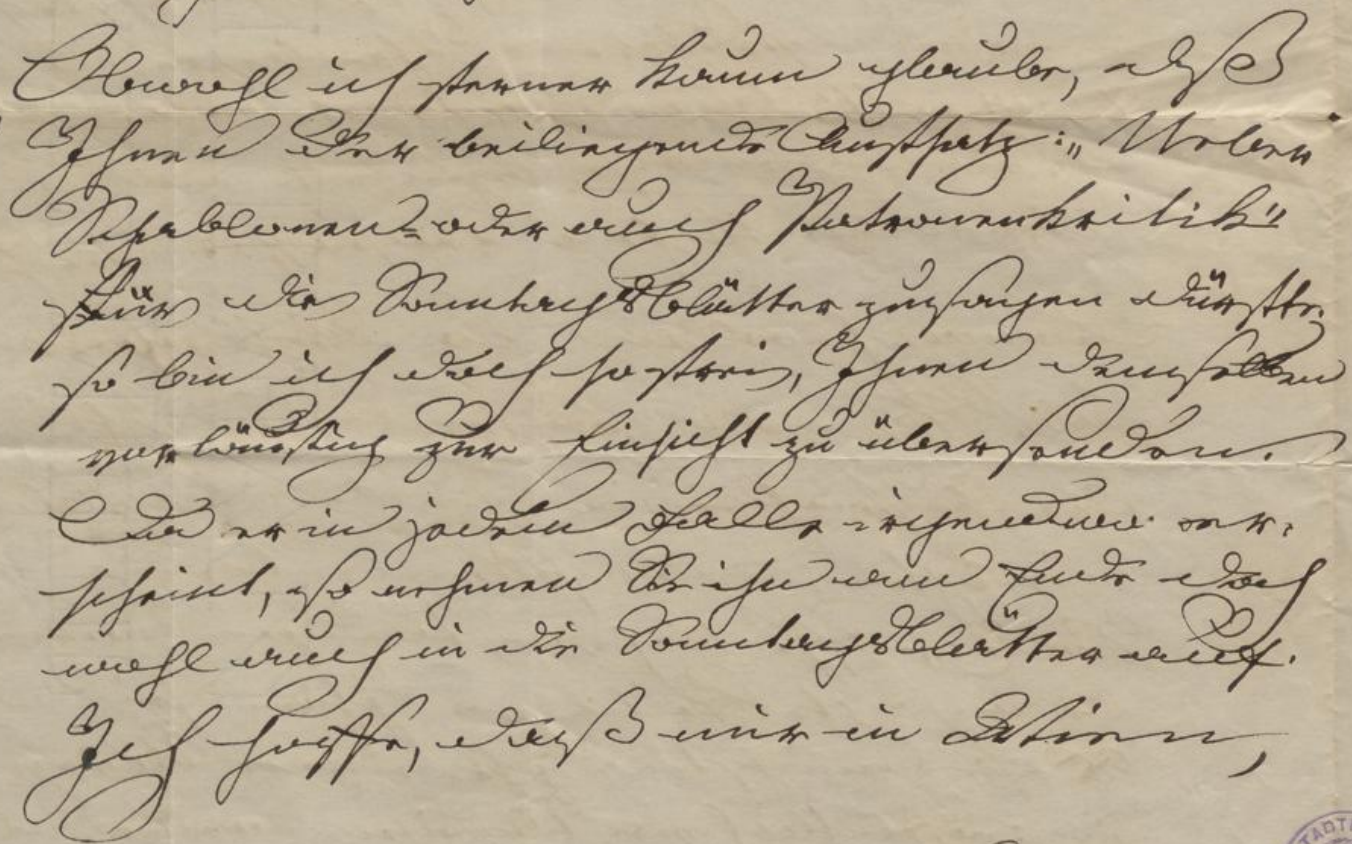 Obwohl ich ferner kaum glaube, daß
Ihnen der beiliegende Aufsatz: „Ueber
Schablonen- oder auch Patronenkritik“
für die Sonntagsblätter zusagen dürfte,
so bin ich doch so frei, Ihnen denselben
vorläufig zur Einsicht zu übersenden.
Da er in jedem Falle irgendwo er-
scheint, so nehmen Sie ihn am Ende doch
wohl auch in die Sonntagsblätter auf.
Ich hoffe, daß mir in Wien,
STADT